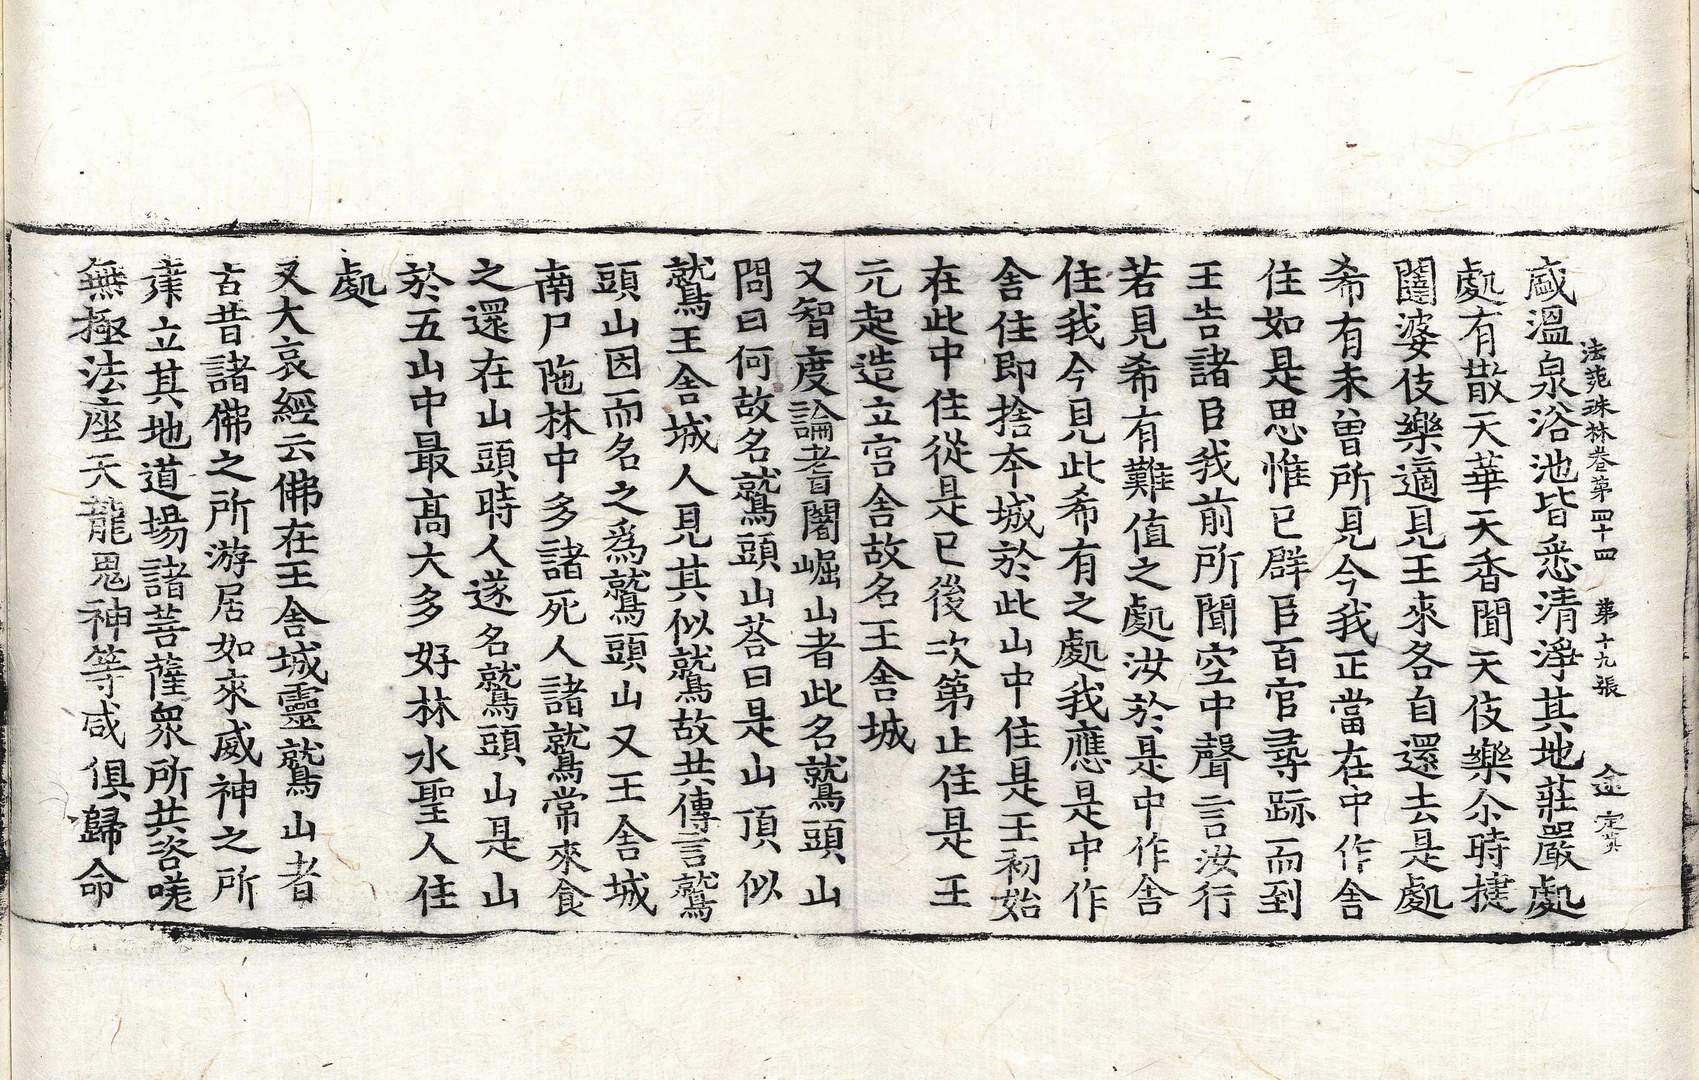 法苑珠林卷第四十四 第十九張 金 定共
葴溫泉浴池皆悉清淨其地莊嚴處
處有散天華天香聞天伎樂尒時揵
闥婆伎樂適見王來各自還去是處
希有未曾所見今我正當在中作舍
住如是思惟已辟臣百官尋跡而到
王告諸臣我前所聞空中聲言汝行
若見希有難值之處汝於是中作舍
住我今見此希有之處我應是中作
舍住即捨本城於此山中住是王初始
在此中住從是已後次第止住是王
元起造立宮舍故名王舍城
又智度論耆闍崛山者此名鷲頭山
問曰何故名鷲頭山荅曰是山頂似
鷲王舍城人見其似鷲故共傳言鷲
頭山因而名之爲鷲頭山又王舍城
南尸陁林中多諸死人諸鷲常來食
之還在山頭時人遂名鷲頭山是山
於五山中最高大多好林水聖人住
處
又大哀經云佛在王舍城靈鷲山者
古昔諸佛之所游居如來威神之所
建立其地道場諸菩薩衆所共咨嗟
無極法座天龍鬼神等咸俱歸命